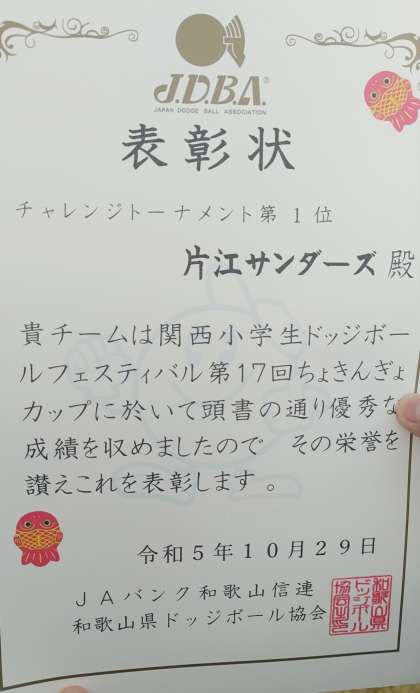 J.D.B.A.®
JAPAN DODGE BALL ASSOCIATION
表彰状
チャレンジトーナメント第1位
片江サンダーズ 殿
貴チームは関西小学生ドッジボー
ルフェスティバル第17回ちょきんぎょ
カップに於いて頭書の通り優秀な
成績を収めましたので その栄誉を
讃えこれを表彰します。
令和5年10月29日
JAバンク和歌山信連
和歌山県ドッジボール協会
和歌山県
ドッジボール
協会之印